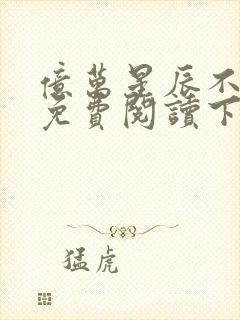 億萬星辰不
免費閱讀下
猛虎